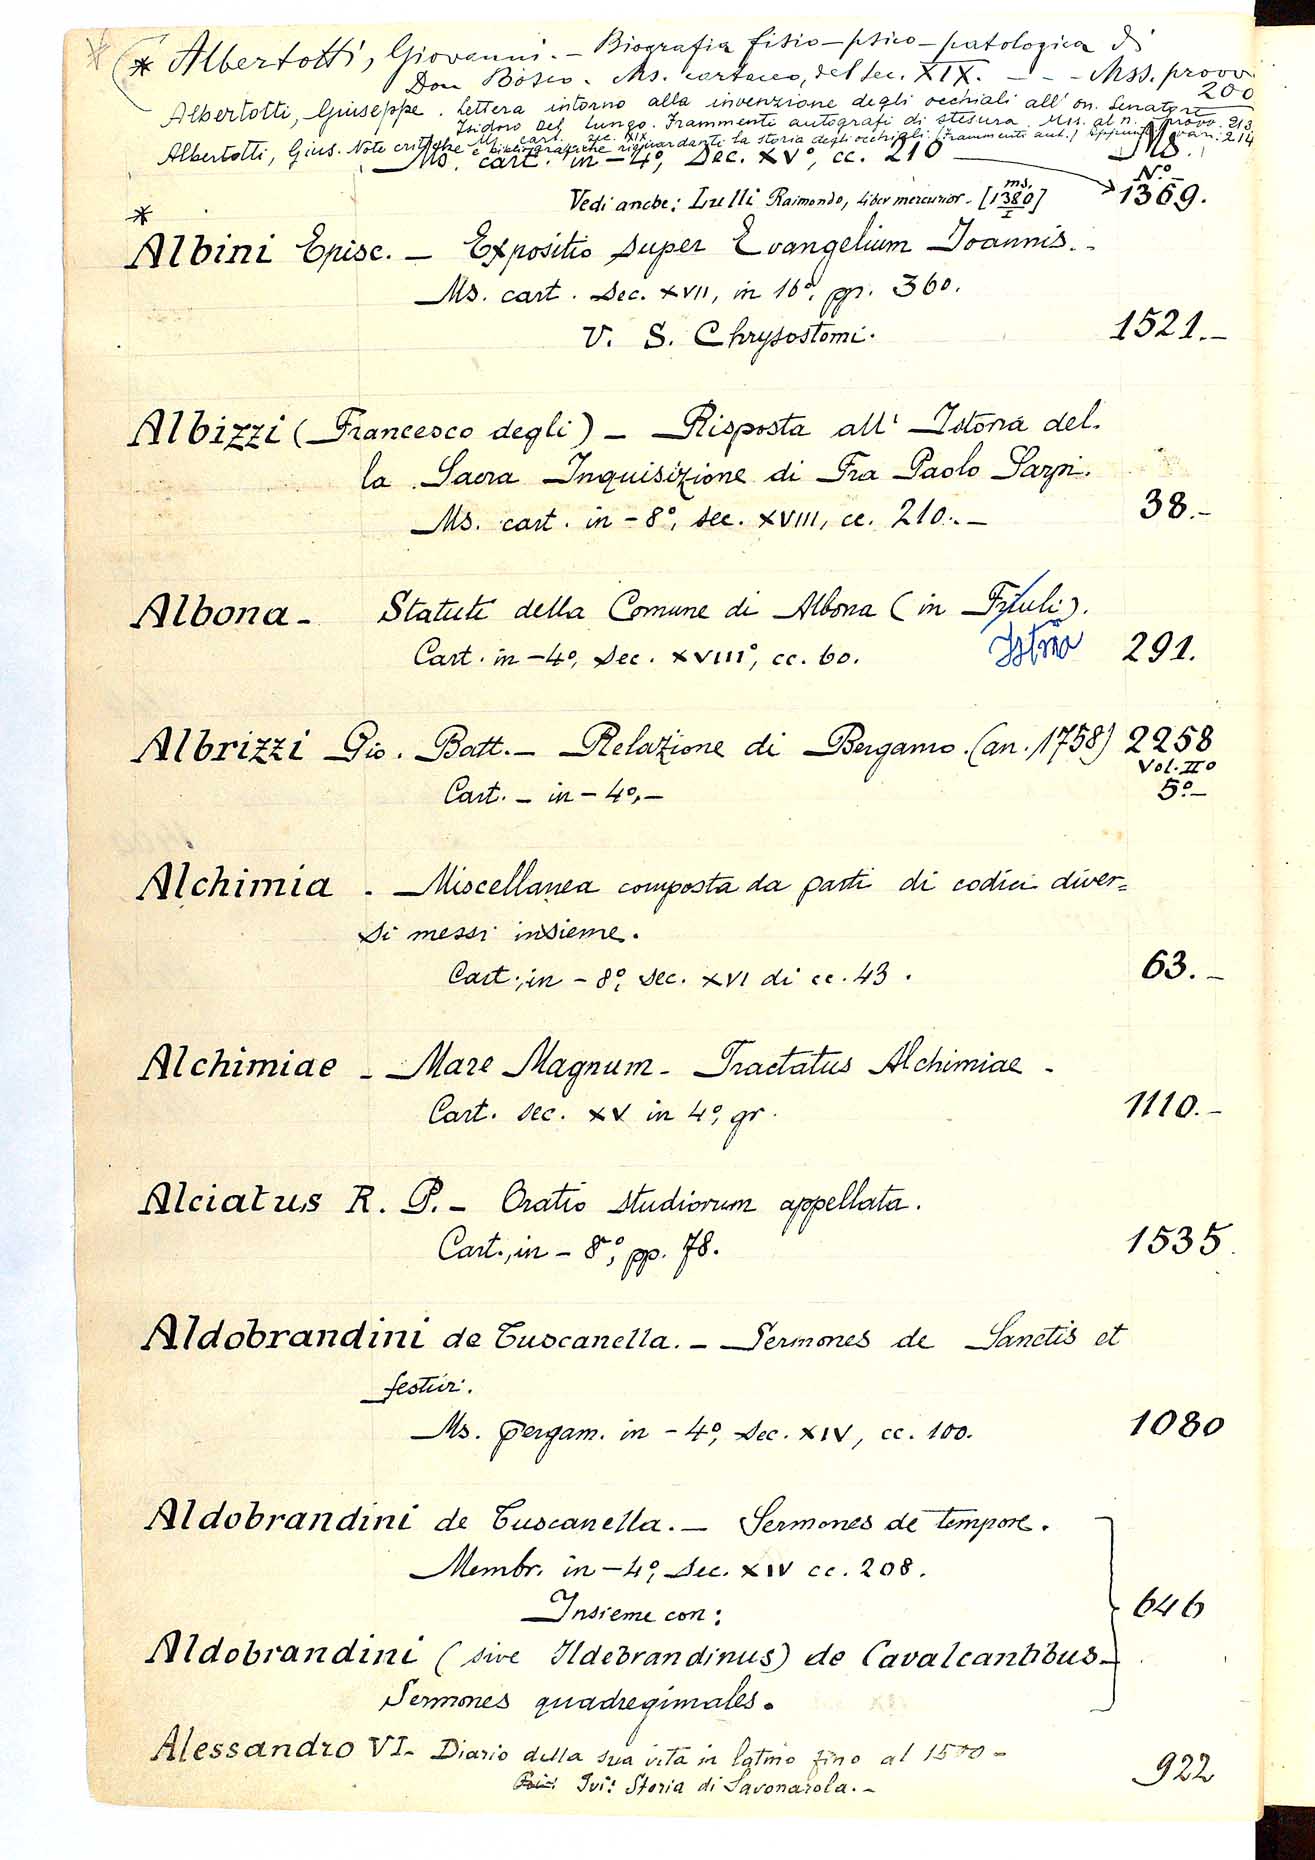 * Albertotti, Giovanni. - Biografia fisio-psico-patologica di
Don Bosco. Ms. cartaceo, del sec. XIX. - - - Mss. provv.
200
Albertotti, Giuseppe. Lettera intorno alla invenzione degli occhiali all' on. Senatore
Isidoro Del Lungo. Frammenti autografi di stesura. Mss. al n. provv. 213
Ms. cart. sec. XIX
Albertotti, Gius. Note critiche e bibliografiche riguardanti la storia degli occhiali. (frammenti aut.) Appunti var. 214
Ms. cart. in-4º, Sec. XVº, cc. 210
Ms.
Nº
Vedi anche: Lulli Raimondo, liber mercurior. [ms. 1380/I]
1369.
*
Albini Episc. - Expositio super Evangelium Joannis. -
Ms. cart. sec. XVII, in 16º, pp. 360.
V. S. Chrysostomi.
1521.-
Albizzi (Francesco degli) - Risposta all' Istoria del-
la Sacra Inquisizione di Fra Paolo Sarpi.
Ms. cart. in-8º, sec. XVIII, cc. 210.-
38.-
Albona - Statuti della Comune di Albona (in Friuli).
Istria
Cart. in-4º, sec. XVIIIº, cc. 60.
291.
Albrizzi Gio. Batt. - Relazione di Bergamo. (an. 1758) 2258
Vol. IIº
Cart. - in-4º,-
5º-
Alchimia . - Miscellanea composta da parti di codici diver=
si messi insieme.
Cart., in-8º, sec. XVI di cc. 43.
63.-
Alchimiae - Mare Magnum - Tractatus Alchimiae -
Cart. sec. XV in 4º, gr.
1110.-
Alciatus R. P. - Oratio studiorum appellata.
Cart., in-8º, pp. 78.
1535.
Aldobrandini de Tuscanella. - Sermones de Sanctis et
festiv.
Ms. pergam. in-4º, sec. XIV, cc. 100.
1080
Aldobrandini de Tuscanella. - Sermones de tempore.
Membr. in-4º, sec. XIV cc. 208.
Insieme con:
646
Aldobrandini (sive Ildebrandinus) de Cavalcantibus -
Sermones quadregimales.
Alessandro VI - Diario della sua vita in latino fino al 1500 -
Ivi: Storia di Savonarola. -
922